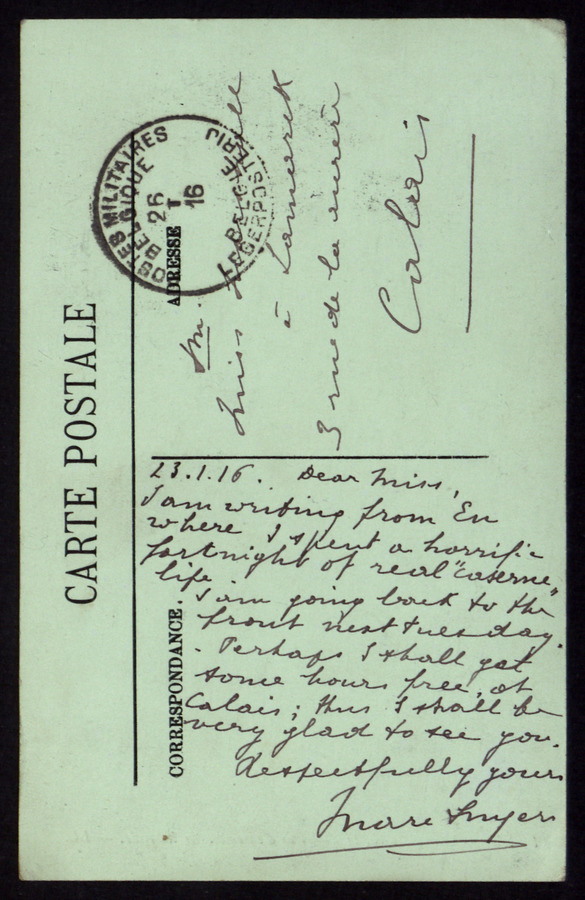 CARTE POSTALE
ADRESSE
POSTES MILITAIRES
BELGIQUE
26
I
16
BELGIE
LEGERPOSTERIJ
M.
Miss
à Lamarck
3 rue de la
Calais
CORRESPONDANCE.
23.1.16. Dear Miss,
I am writing from Eu
where I spent a horrific
fortnight of real "caserne"
life.
I am going back to the
front next tuesday.
. Perhaps I shall get
some hours free, at
Calais; thus I shall be
very glad to see you.
Respectfully yours